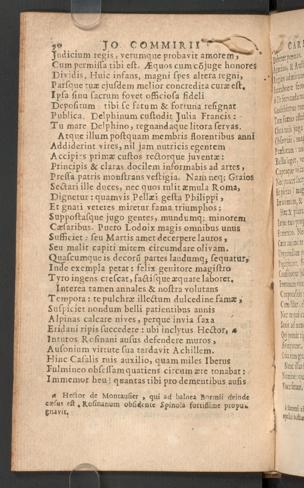 JO COMMIRII
Judicium regis, verumque probavit amorem,
Cum permissa tibi est. Æquos cum cõjuge honores
Dividis. Huic infans, magni spes altera regni,
Parsque tuæ ejusdem melior concredita curæ est,
Ipsa sinu sacrum fovet officiosa fideli
Depositum tibi se fatum & fortuna resignat
Publica. Delphinum custodit Julia Francis:
Tu mare Delphino, regnandaque litora servas.
Atque illum postquam membris florentibus anni
Addiderint vires, nil jam nutricis egentem
Accipies primæ custos rectorque juventæ:
Principis & claras docilem informabis ad artes,
Pressa patris monstrans vestigia. Nam neq; Graios
Sectari ille duces, nec quos tulit æmula Roma,
Dignetur: quamvis Pellæi gesta Philippi,
Et gnati veteres miretur fama triumphos:
Suppostasque jugo gentes, mundumq; minorem
Cæsaribus. Puero Lodoix magis omnibus unus
Sufficiet: seu Martis amet decerpere lauros,
Seu malit capiti mitem circumdare olivam.
Quascumque is decorũ partes laudumq; sequatur,
Inde exempla petat: felix genitore magistro
Tyro ingens crescat, factisque æquare laboret.
Interea tamen annales & nostra volutans
Tempora: te pulchræ illectum dulcedine famæ,
Suspiciet nondum belli patientibus annis
Alpinas calcare nives, perque invia saxa
Eridani ripis succedere: ubi inclytus Hector, a
Intutos Rosinani ausus defendere muros,
Ausonium virtute sua tardavit Achillem.
Hinc Casalis ruis auxilio, quam miles Iberus
Fulmineo obsessam quatiens circum ære tonabat:
Immemor heu! quantas tibi pro dementibus ausis
a Hector de Montausier, qui ad balnea Bormii deinde
cæsus est, Rosinanum obsidente Spinola fortissime propu-
gnavit.